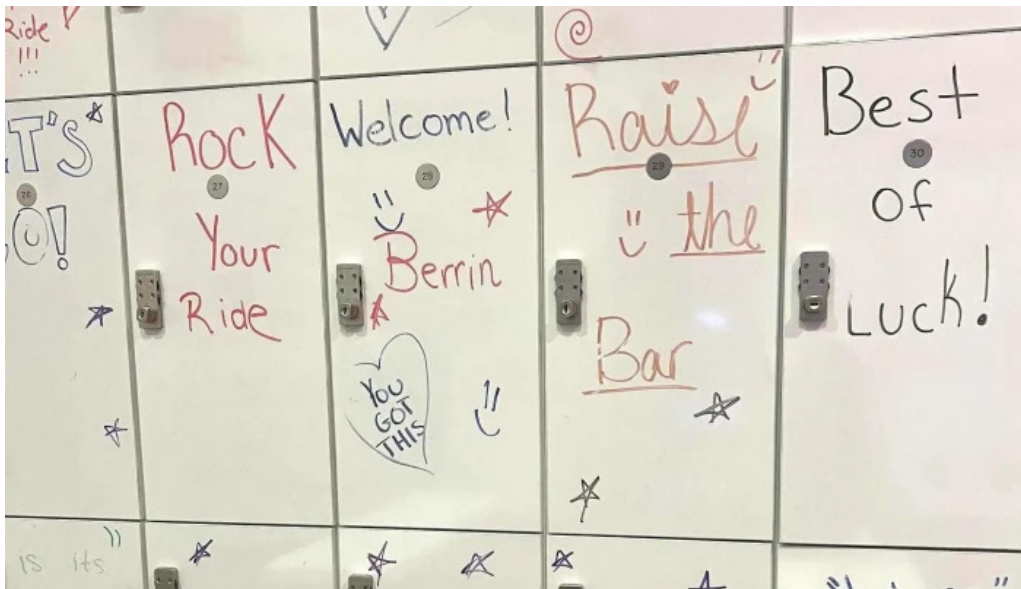 Ride
!!!
ROCK
27
Your
Ride
Welcome!
28
Berrin
YOU
GOT
THIS
Raise
29
the
Bar
Best
30
of
Luck!
T'S
26
O!
is its